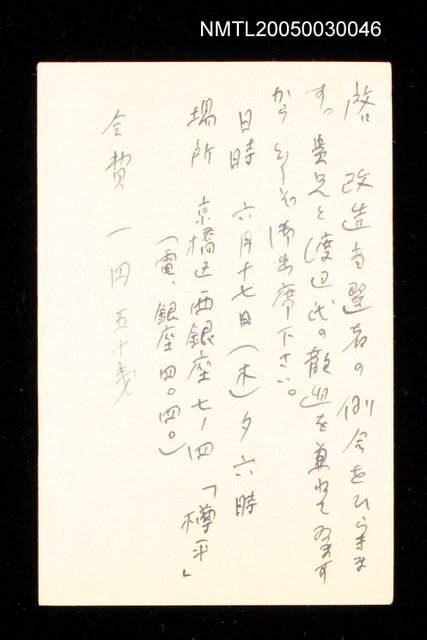 NMTL20050030046
啓 改造当選者の例会をひらきま
す。貴兄と渡辺氏の歓迎を兼ねてゐます
から どうぞ御出席下さい。
日時 六月十七日(木)夕六時
場所 京橋区西銀座七ノ四「樽平」
(電、銀座四〇四〇)
会費 一円五十銭